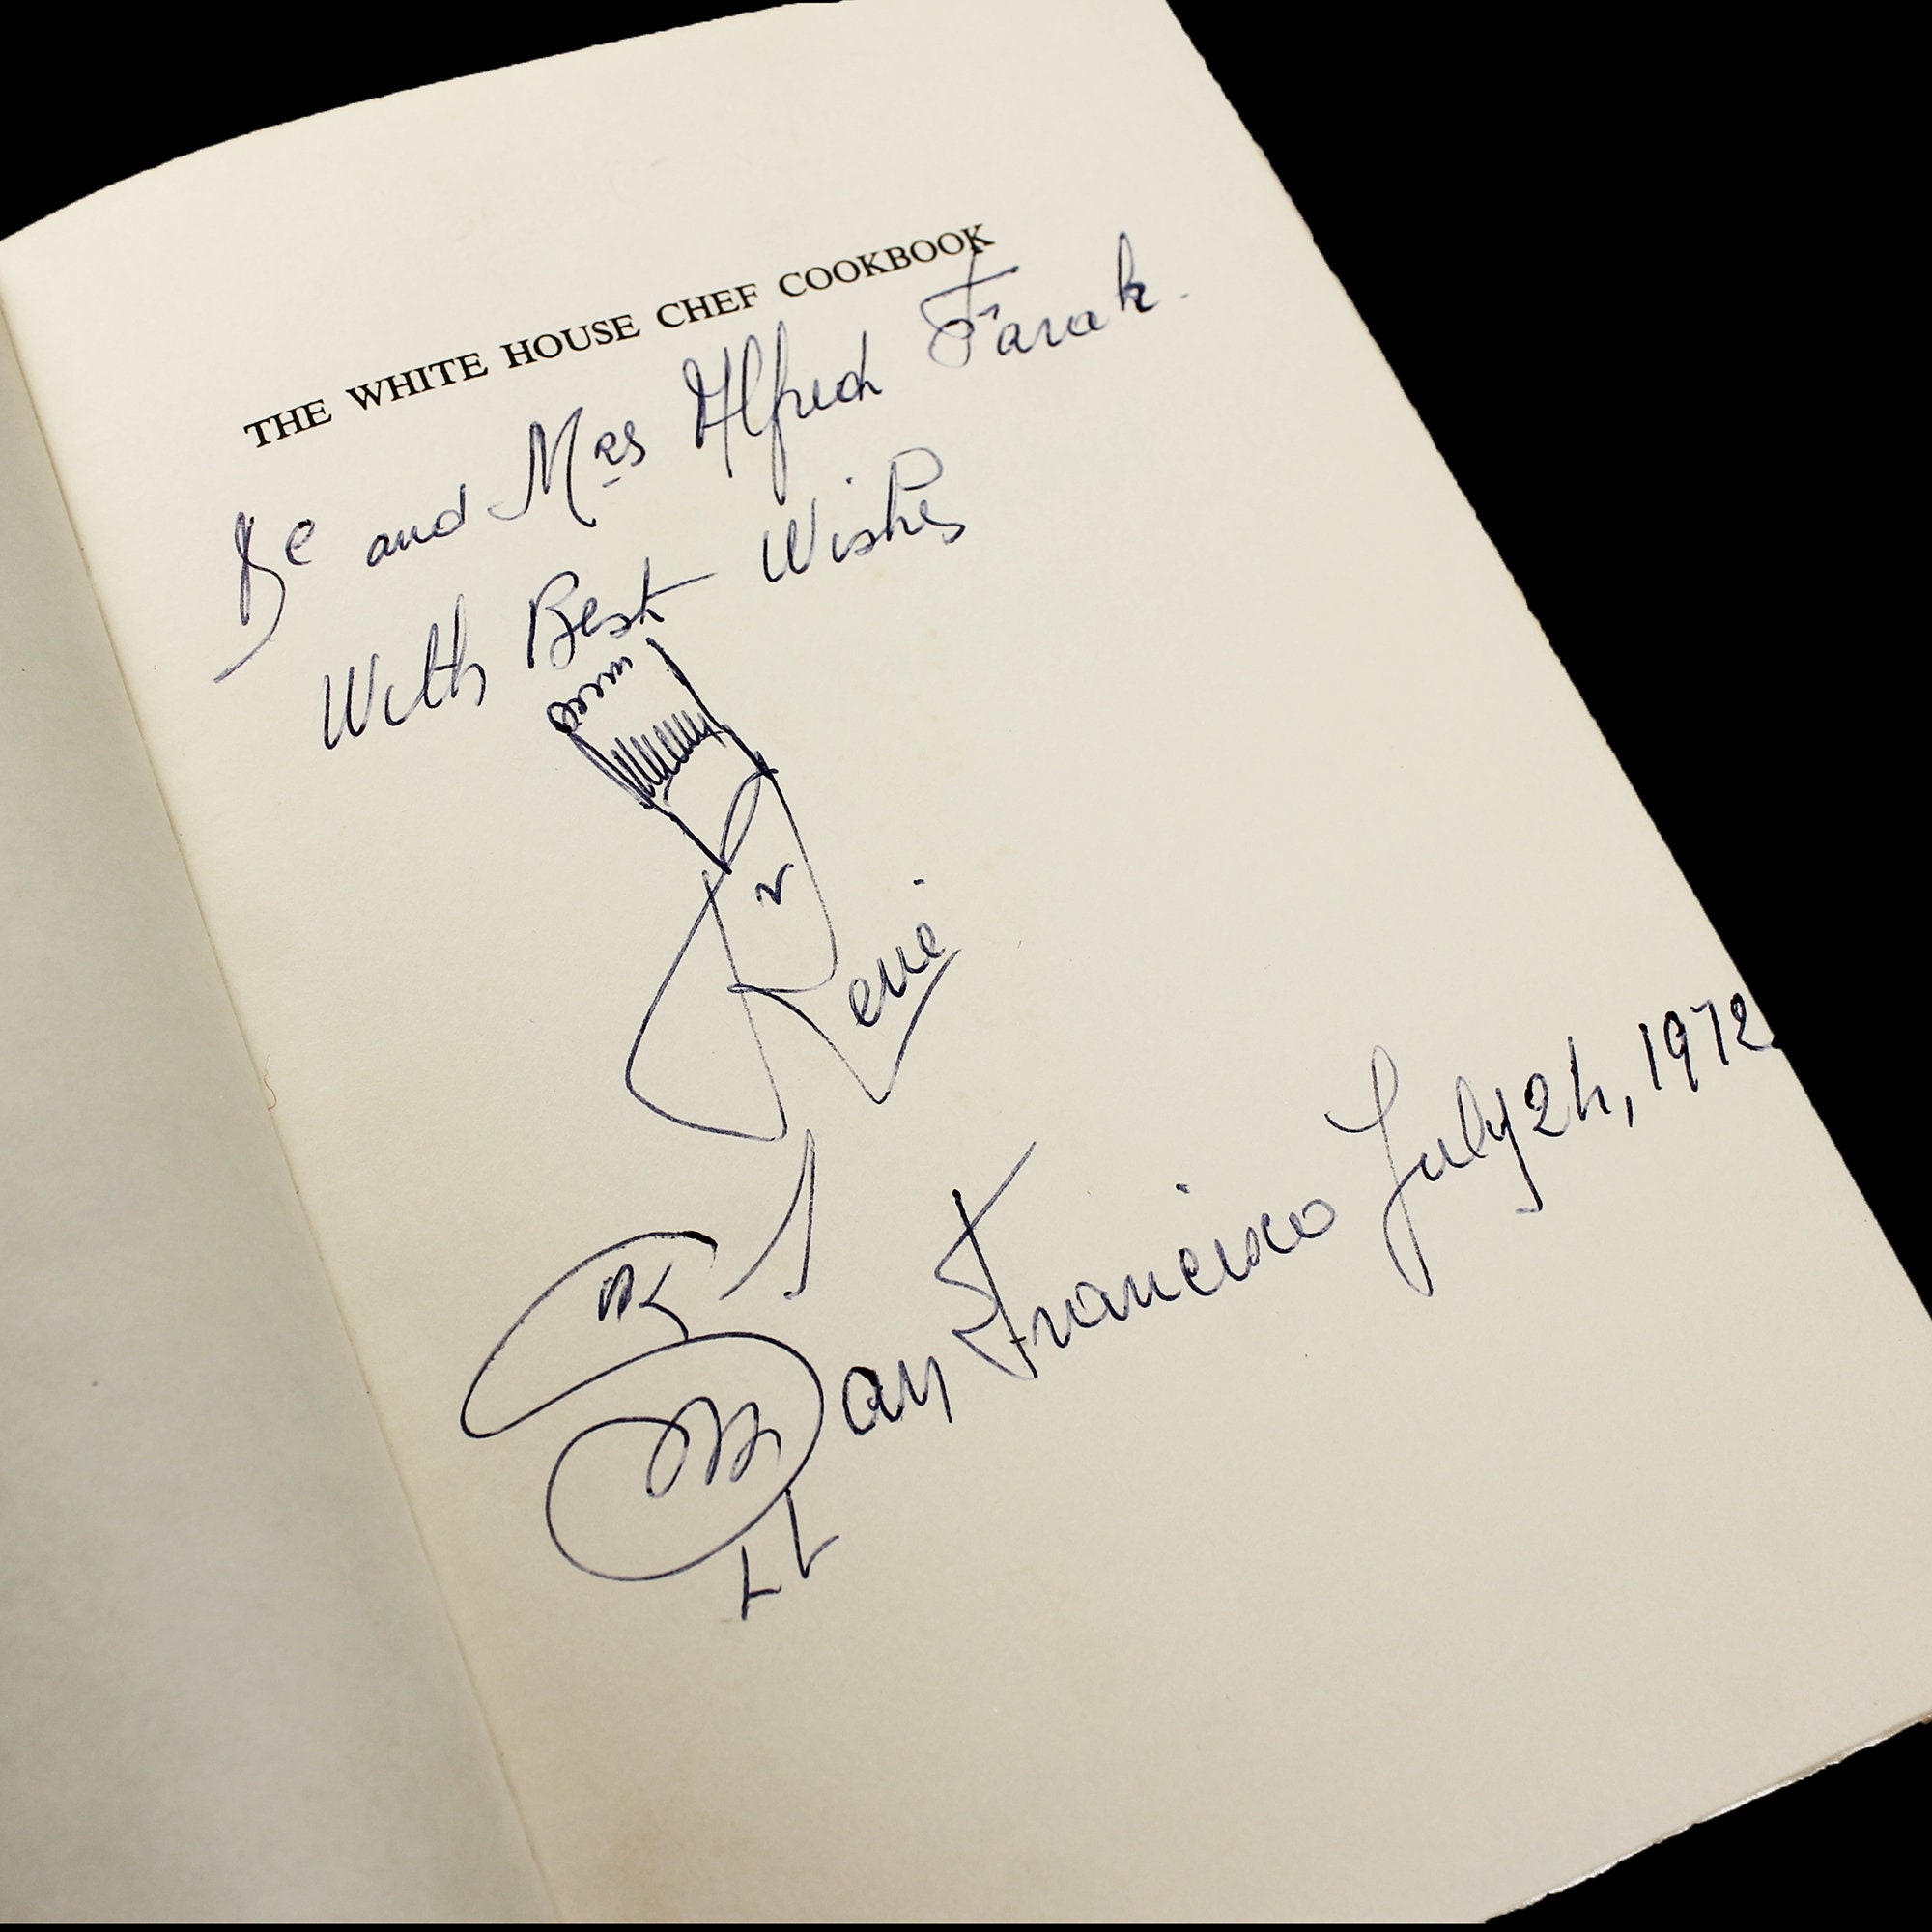 THE WHITE HOUSE CHEF COOKBOOK
and Mrs Alfred Farak.
With Best Wishes
René
San Francisco July 24, 1972